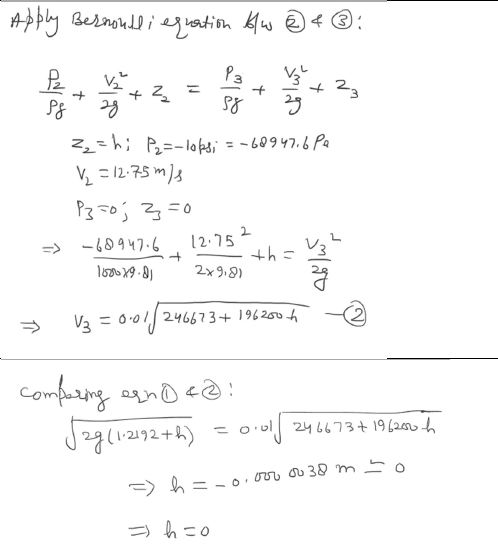 Apply Bernoulli equation b/w ② & ③:
P₂/ρg + V₂²/2g + Z₂ = P₃/ρg + V₃²/2g + Z₃
Z₂ = h; P₂ = -10psi = -68947.6 Pa
V₂ = 12.75 m/s
P₃ = 0; Z₃ = 0
⇒ -68947.6/1000×9.81 + 12.75²/2×9.81 + h = V₃²/2g
⇒ V₃ = 0.01√(246673 + 196200h) —②
Comparing eqn ① & ②:
√(2g(1.2192+h)) = 0.01√(246673 + 196200h)
⇒ h = -0.0000038 m ≃ 0
⇒ h = 0